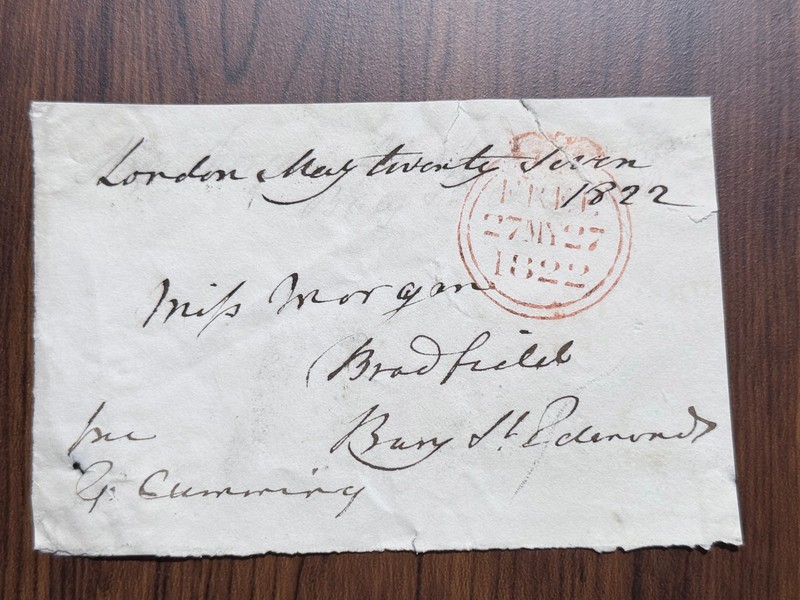 London May twenty Seven
1822
FREE
27MY27
1822
Miss Morgan
Bradfield
Bury St. Edmonds
free
G. Cumming